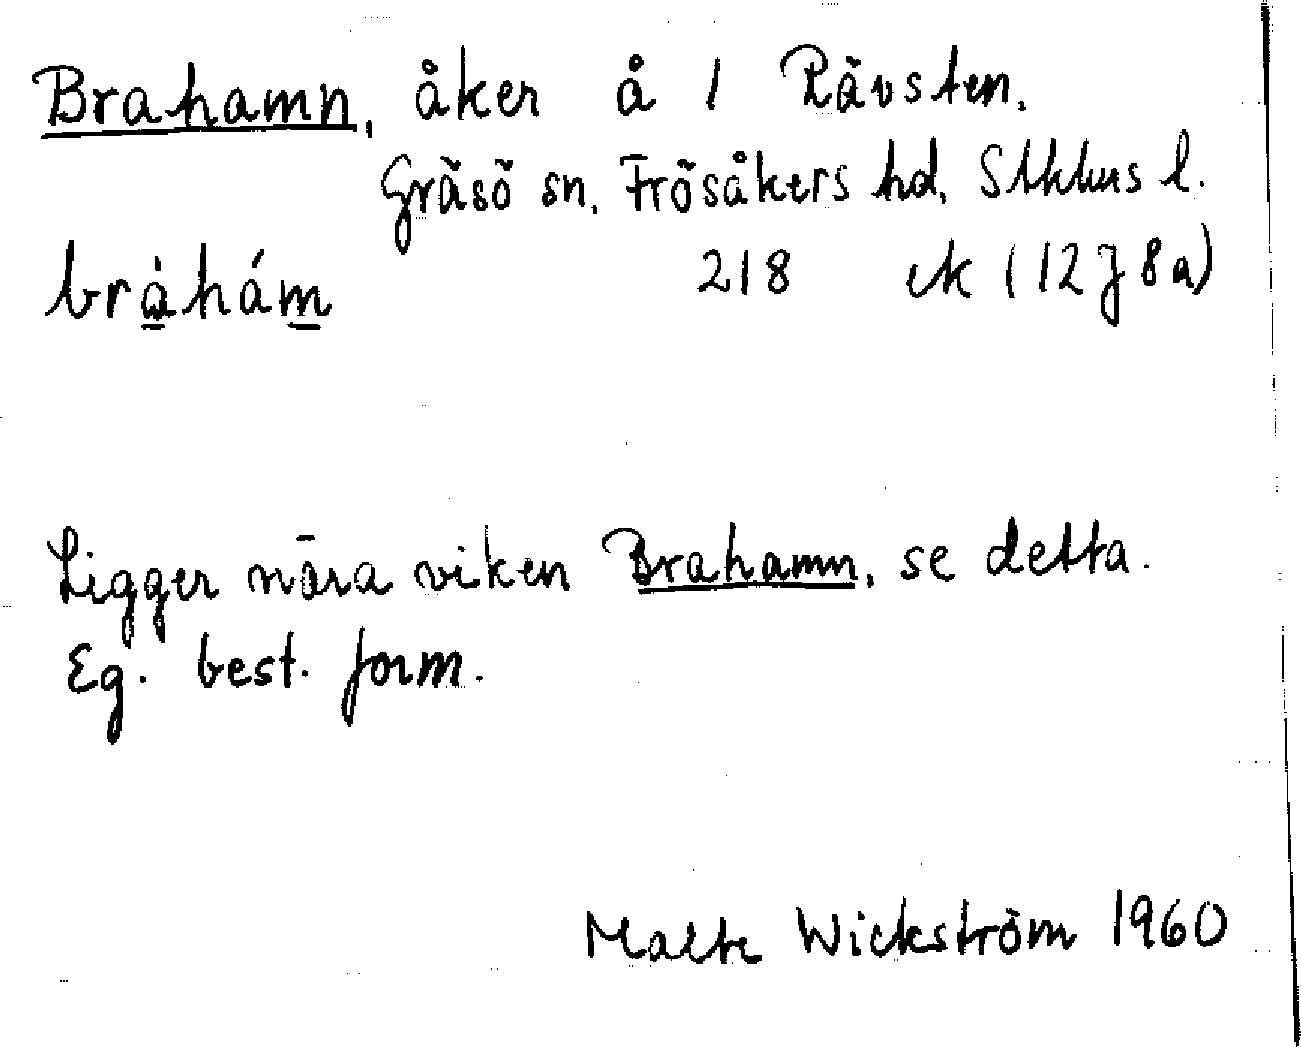 Brahamn, åker å 1 Rävsten.
Gräsö sn, Frösåkers hd, Stkhms l.
bràhám 218 ek (12J8a)
Ligger nära viken Brahamn, se detta.
Eg. best. form.
Malte Wickström 1960